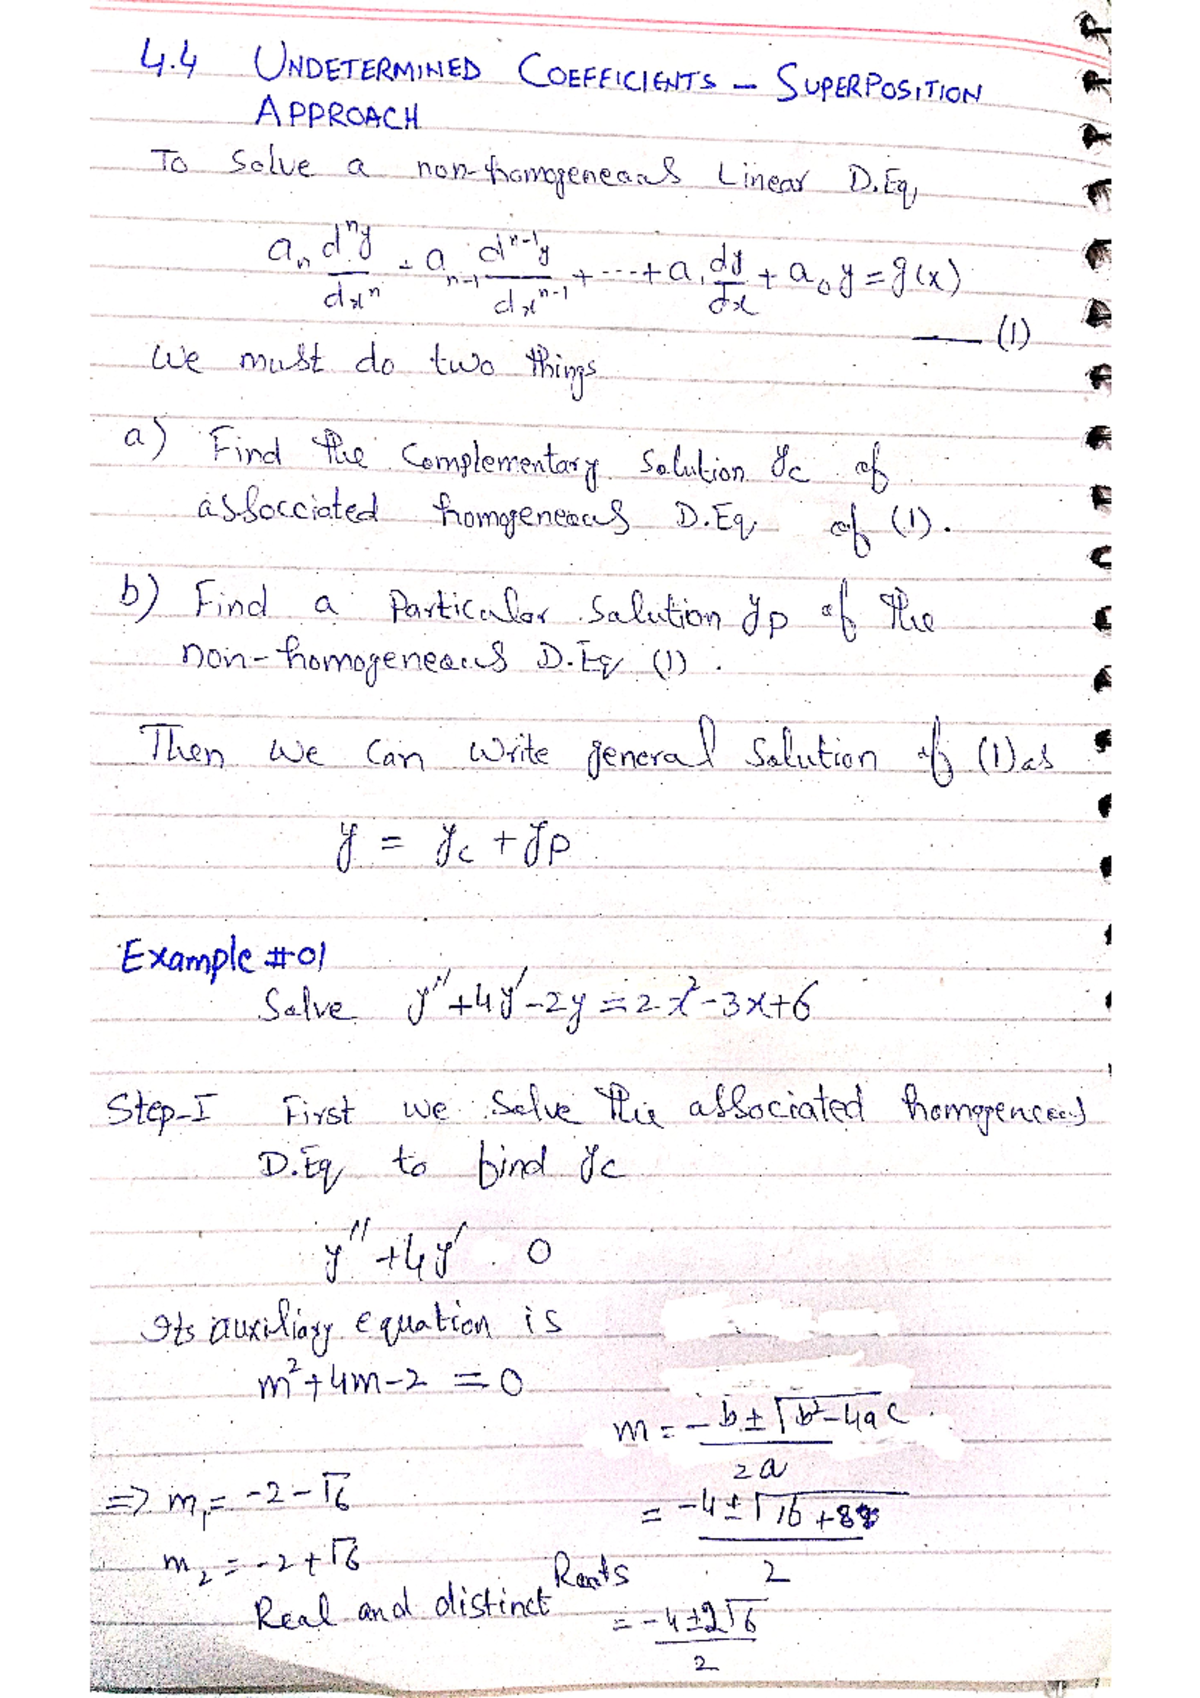 4.4 UNDETERMINED COEFFICIENTS – SUPERPOSITION
APPROACH
To Solve a non-homogeneous Linear D.Eq,
aₙ dⁿy/dxⁿ + aₙ₋₁ dⁿ⁻¹y/dxⁿ⁻¹ + --- + a₁ dy/dx + a₀y = g(x)
—— (1)
We must do two things
a) Find the Complementary Solution yc of
assocciated homogeneous D.Eq. of (1).
b) Find a Particular Solution yp of the
non-homogeneous D.Eq (1).
Then we can write general Solution of (1) as
y = yc + yp
Example #01
Solve y''+4y'-2y = 2x²-3x+6
Step-I First we Solve the associated homogeneous
D.Eq to find yc
y'' + 4y' 0
Its auxiliary equation is
m²+4m-2 = 0
m = -b ± √b²-4ac / 2a
⇒ m₁ = -2-√6
= -4 ± √16+8 / 2
m₂ = -2+√6
Real and distinct Roots
= -4±2√6 / 2